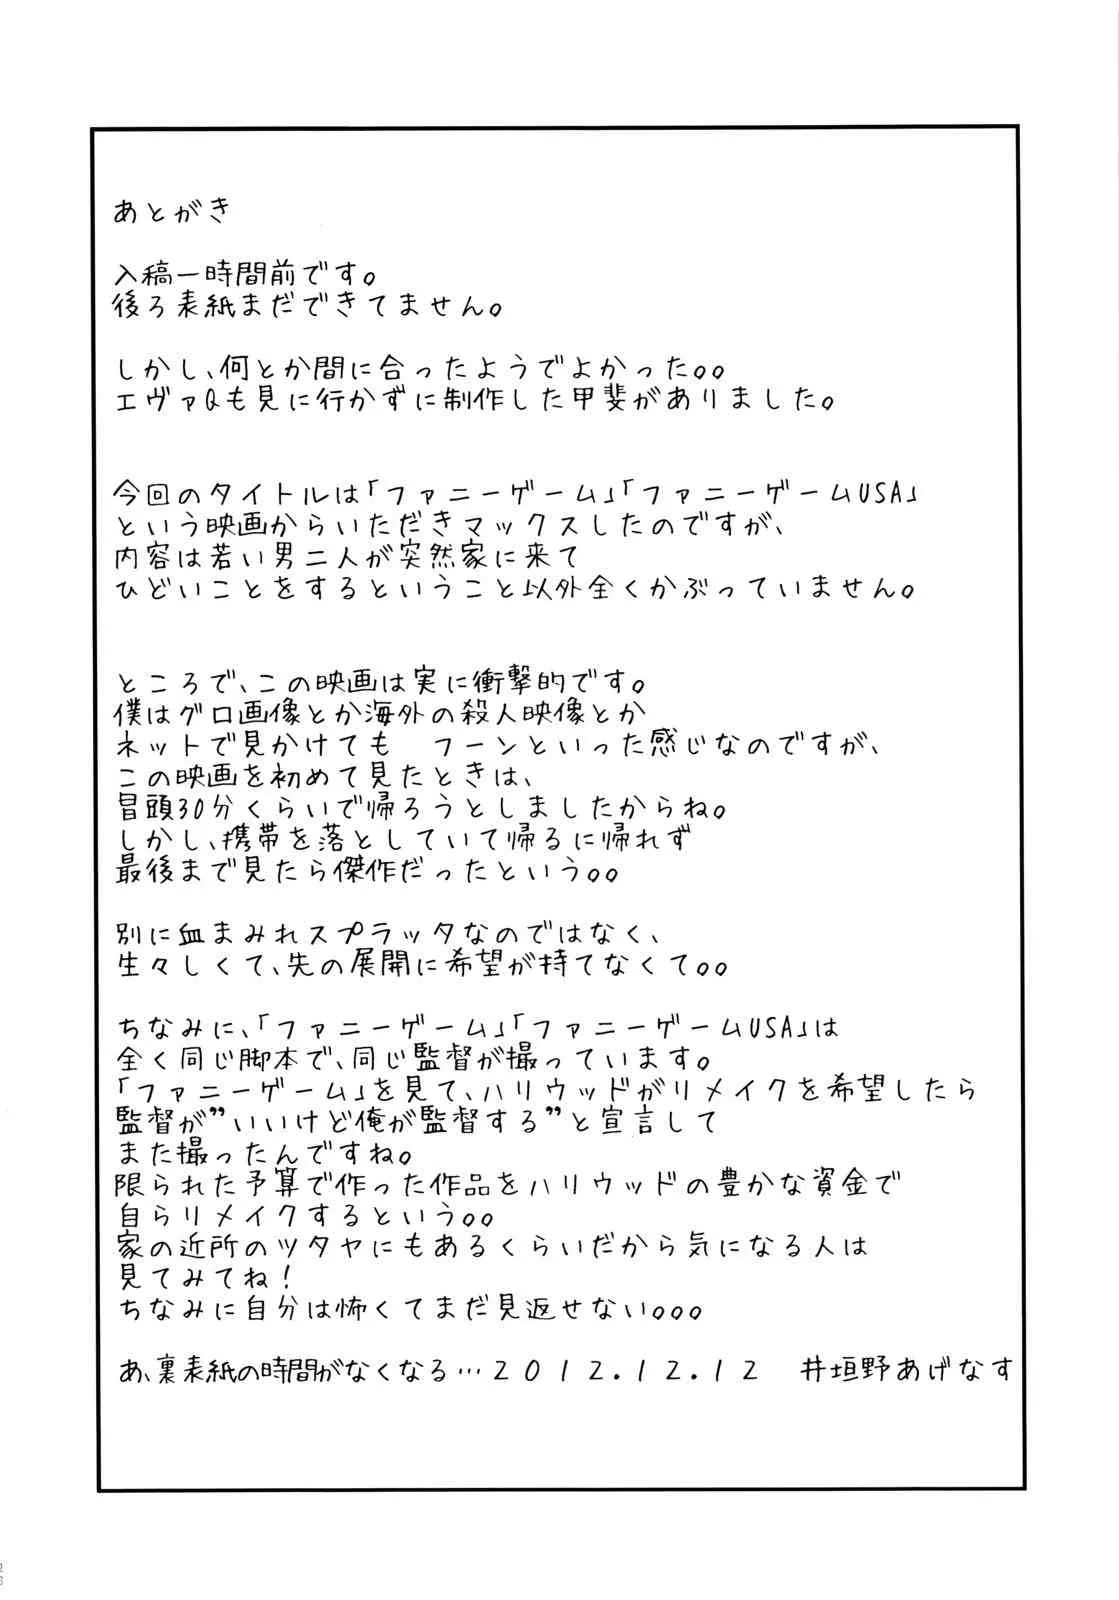 あとがき
入稿一時間前です。
後ろ表紙まだできてません。
しかし、何とか間に合ったようでよかった。。
エヴァQも見に行かずに制作した甲斐がありました。
今回のタイトルは「ファニーゲーム」「ファニーゲームUSA」
という映画からいただきマックスしたのですが、
内容は若い男二人が突然家に来て
ひどいことをするということ以外全くかぶっていません。
ところで、この映画は実に衝撃的です。
僕はグロ画像とか海外の殺人映像とか
ネットで見かけても　フーンといった感じなのですが、
この映画を初めて見たときは、
冒頭30分くらいで帰ろうとしましたからね。
しかし、携帯を落としていて帰るに帰れず
最後まで見たら傑作だったという。。
別に血まみれスプラッタなのではなく、
生々しくて、先の展開に希望が持てなくて。。
ちなみに、「ファニーゲーム」「ファニーゲームUSA」は
全く同じ脚本で、同じ監督が撮っています。
「ファニーゲーム」を見て、ハリウッドがリメイクを希望したら
監督が”いいけど俺が監督する”と宣言して
また撮ったんですね。
限られた予算で作った作品をハリウッドの豊かな資金で
自らリメイクするという。。
家の近所のツタヤにもあるくらいだから気になる人は
見てみてね！
ちなみに自分は怖くてまだ見返せない。。。
あ、裏表紙の時間がなくなる…２０１２.１２.１２　井垣野あげなす